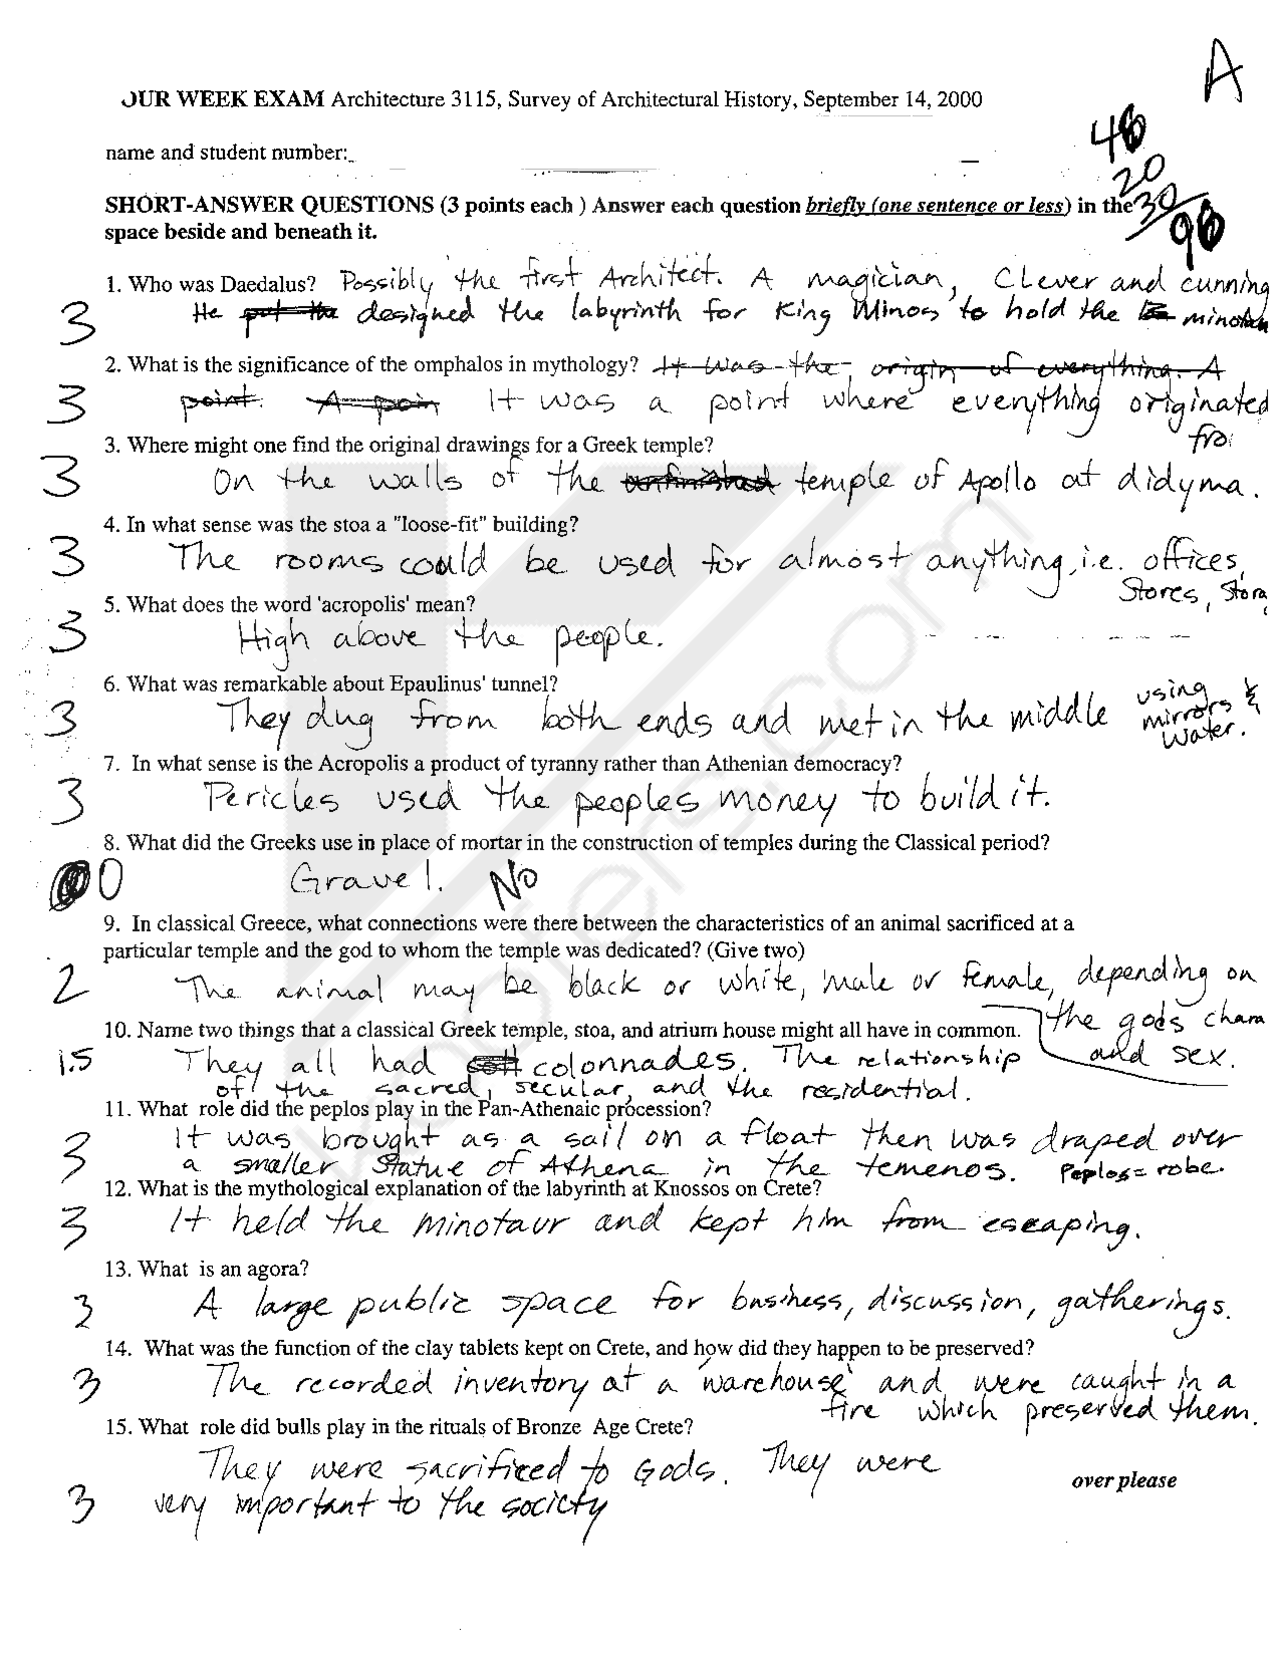 A
OUR WEEK EXAM Architecture 3115, Survey of Architectural History, September 14, 2000
name and student number:
20
30
SHORT-ANSWER QUESTIONS (3 points each ) Answer each question briefly (one sentence or less) in the
space beside and beneath it.
1. Who was Daedalus? Possibly the first Architect. A magician, Clever and cunning
3 He put the designed the labyrinth for King Minos to hold the minotaur
2. What is the significance of the omphalos in mythology? It was the origin of everything. A
3 point. A poin It was a point where everything originated
fro
3. Where might one find the original drawings for a Greek temple?
3 On the walls of the unfinished temple of Apollo at didyma.
4. In what sense was the stoa a "loose-fit" building?
3 The rooms could be used for almost anything, i.e. offices,
Stores, Stora
5. What does the word 'acropolis' mean?
3 High above the people.
6. What was remarkable about Epaulinus' tunnel?
3 They dug from both ends and met in the middle using mirrors & water.
7. In what sense is the Acropolis a product of tyranny rather than Athenian democracy?
3 Pericles used the peoples money to build it.
8. What did the Greeks use in place of mortar in the construction of temples during the Classical period?
0 Gravel. NO
9. In classical Greece, what connections were there between the characteristics of an animal sacrificed at a
particular temple and the god to whom the temple was dedicated? (Give two)
2 The animal may be black or white, male or female, depending on
the gods chara
and sex.
10. Name two things that a classical Greek temple, stoa, and atrium house might all have in common.
1.5 They all had colonnades. The relationship
of the sacred, secular, and the residential.
11. What role did the peplos play in the Pan-Athenaic procession?
3 It was brought as a sail on a float then was draped over
a smaller statue of Athena in the temenos. Peplos = robe.
12. What is the mythological explanation of the labyrinth at Knossos on Crete?
3 It held the minotaur and kept him from escaping.
13. What is an agora?
3 A large public space for business, discussion, gatherings.
14. What was the function of the clay tablets kept on Crete, and how did they happen to be preserved?
3 The recorded inventory at a 'warehouse' and were caught in a
fire which preserved them.
15. What role did bulls play in the rituals of Bronze Age Crete?
They were sacrificed to Gods. They were
over please
3 very important to the society
koofers.com